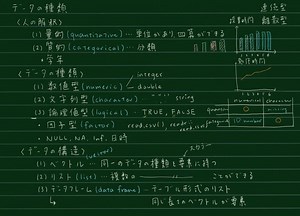 データの種類
〈人の解釈〉
(1) 量的 (quantitative) … 単位があり、四則ができる
(2) 質的 (categorical) … 分類
・学年
連続型
離散型
〈データの種類〉
(1) 数値型 (numeric) integer
double
(2) 文字列型 (character) … string
(3) 論理値型 (logical) … TRUE, FALSE
・因子型 (factor) read.csv(),
・NULL, NA, Inf, 日時
numerical
character
〈データの構造〉
(1) ベクトル (vector) … 同一のデータの種類を要素に持つ
スカラー
(2) リスト (list) … 複数の ことができる
(3) データフレーム (data frame) … テーブル形式のリスト
同じ長さのベクトルが要素